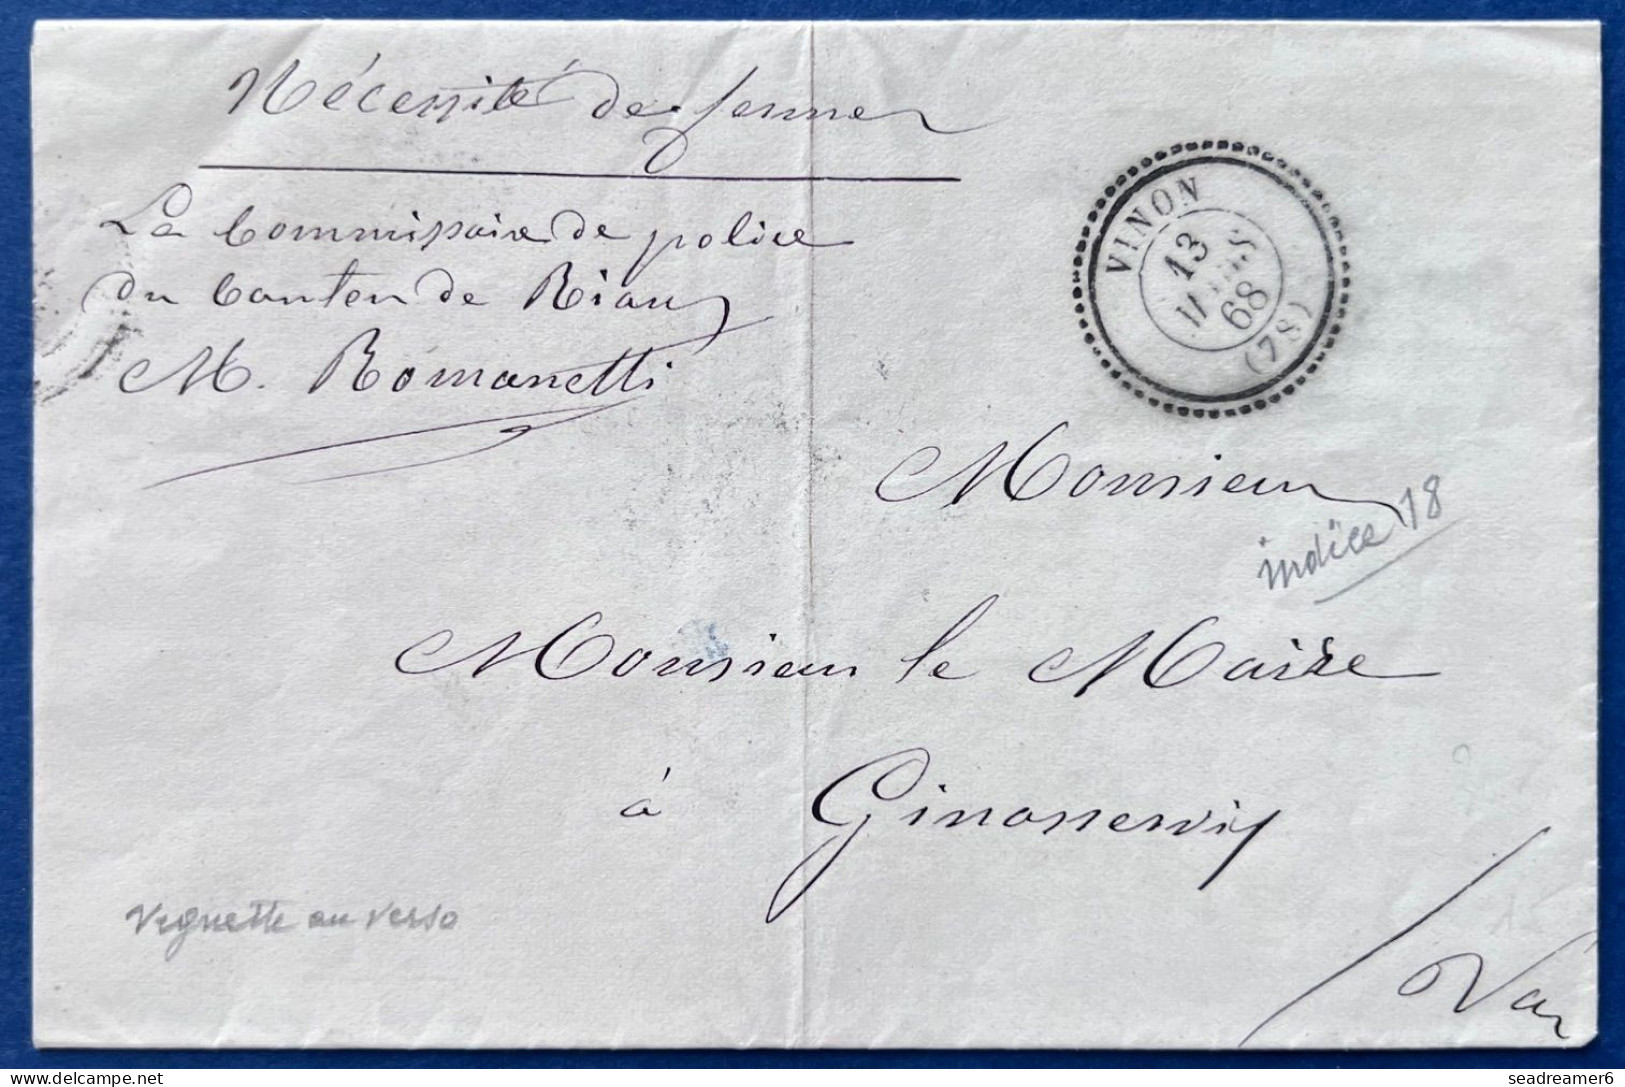 Nécessité de fermer
Le Commissaire de police
du Canton de Rians
M. Romanetti
VINON
13
MARS
68
(78)
Monsieur
indice 18
Monsieur le Maire
à Ginasservis
Var
Vignette au verso
delcampe.net
seadreamer6